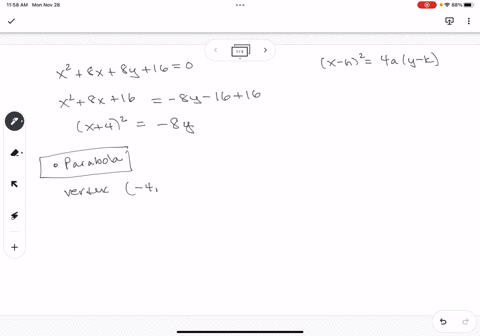 11:58 AM Mon Nov 28
88%
1/1
x² + 8x + 8y + 16 = 0
(x-h)² = 4a(y-k)
x² + 8x + 16 = -8y - 16 + 16
(x+4)² = -8y
• Parabola
vertex (-4,